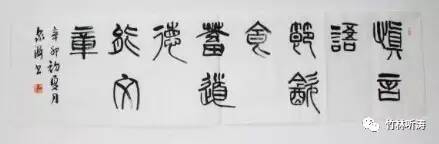 慎言
語
節飲
食
蓄道
德
能文
章
辛卯初夏月
竹林听涛